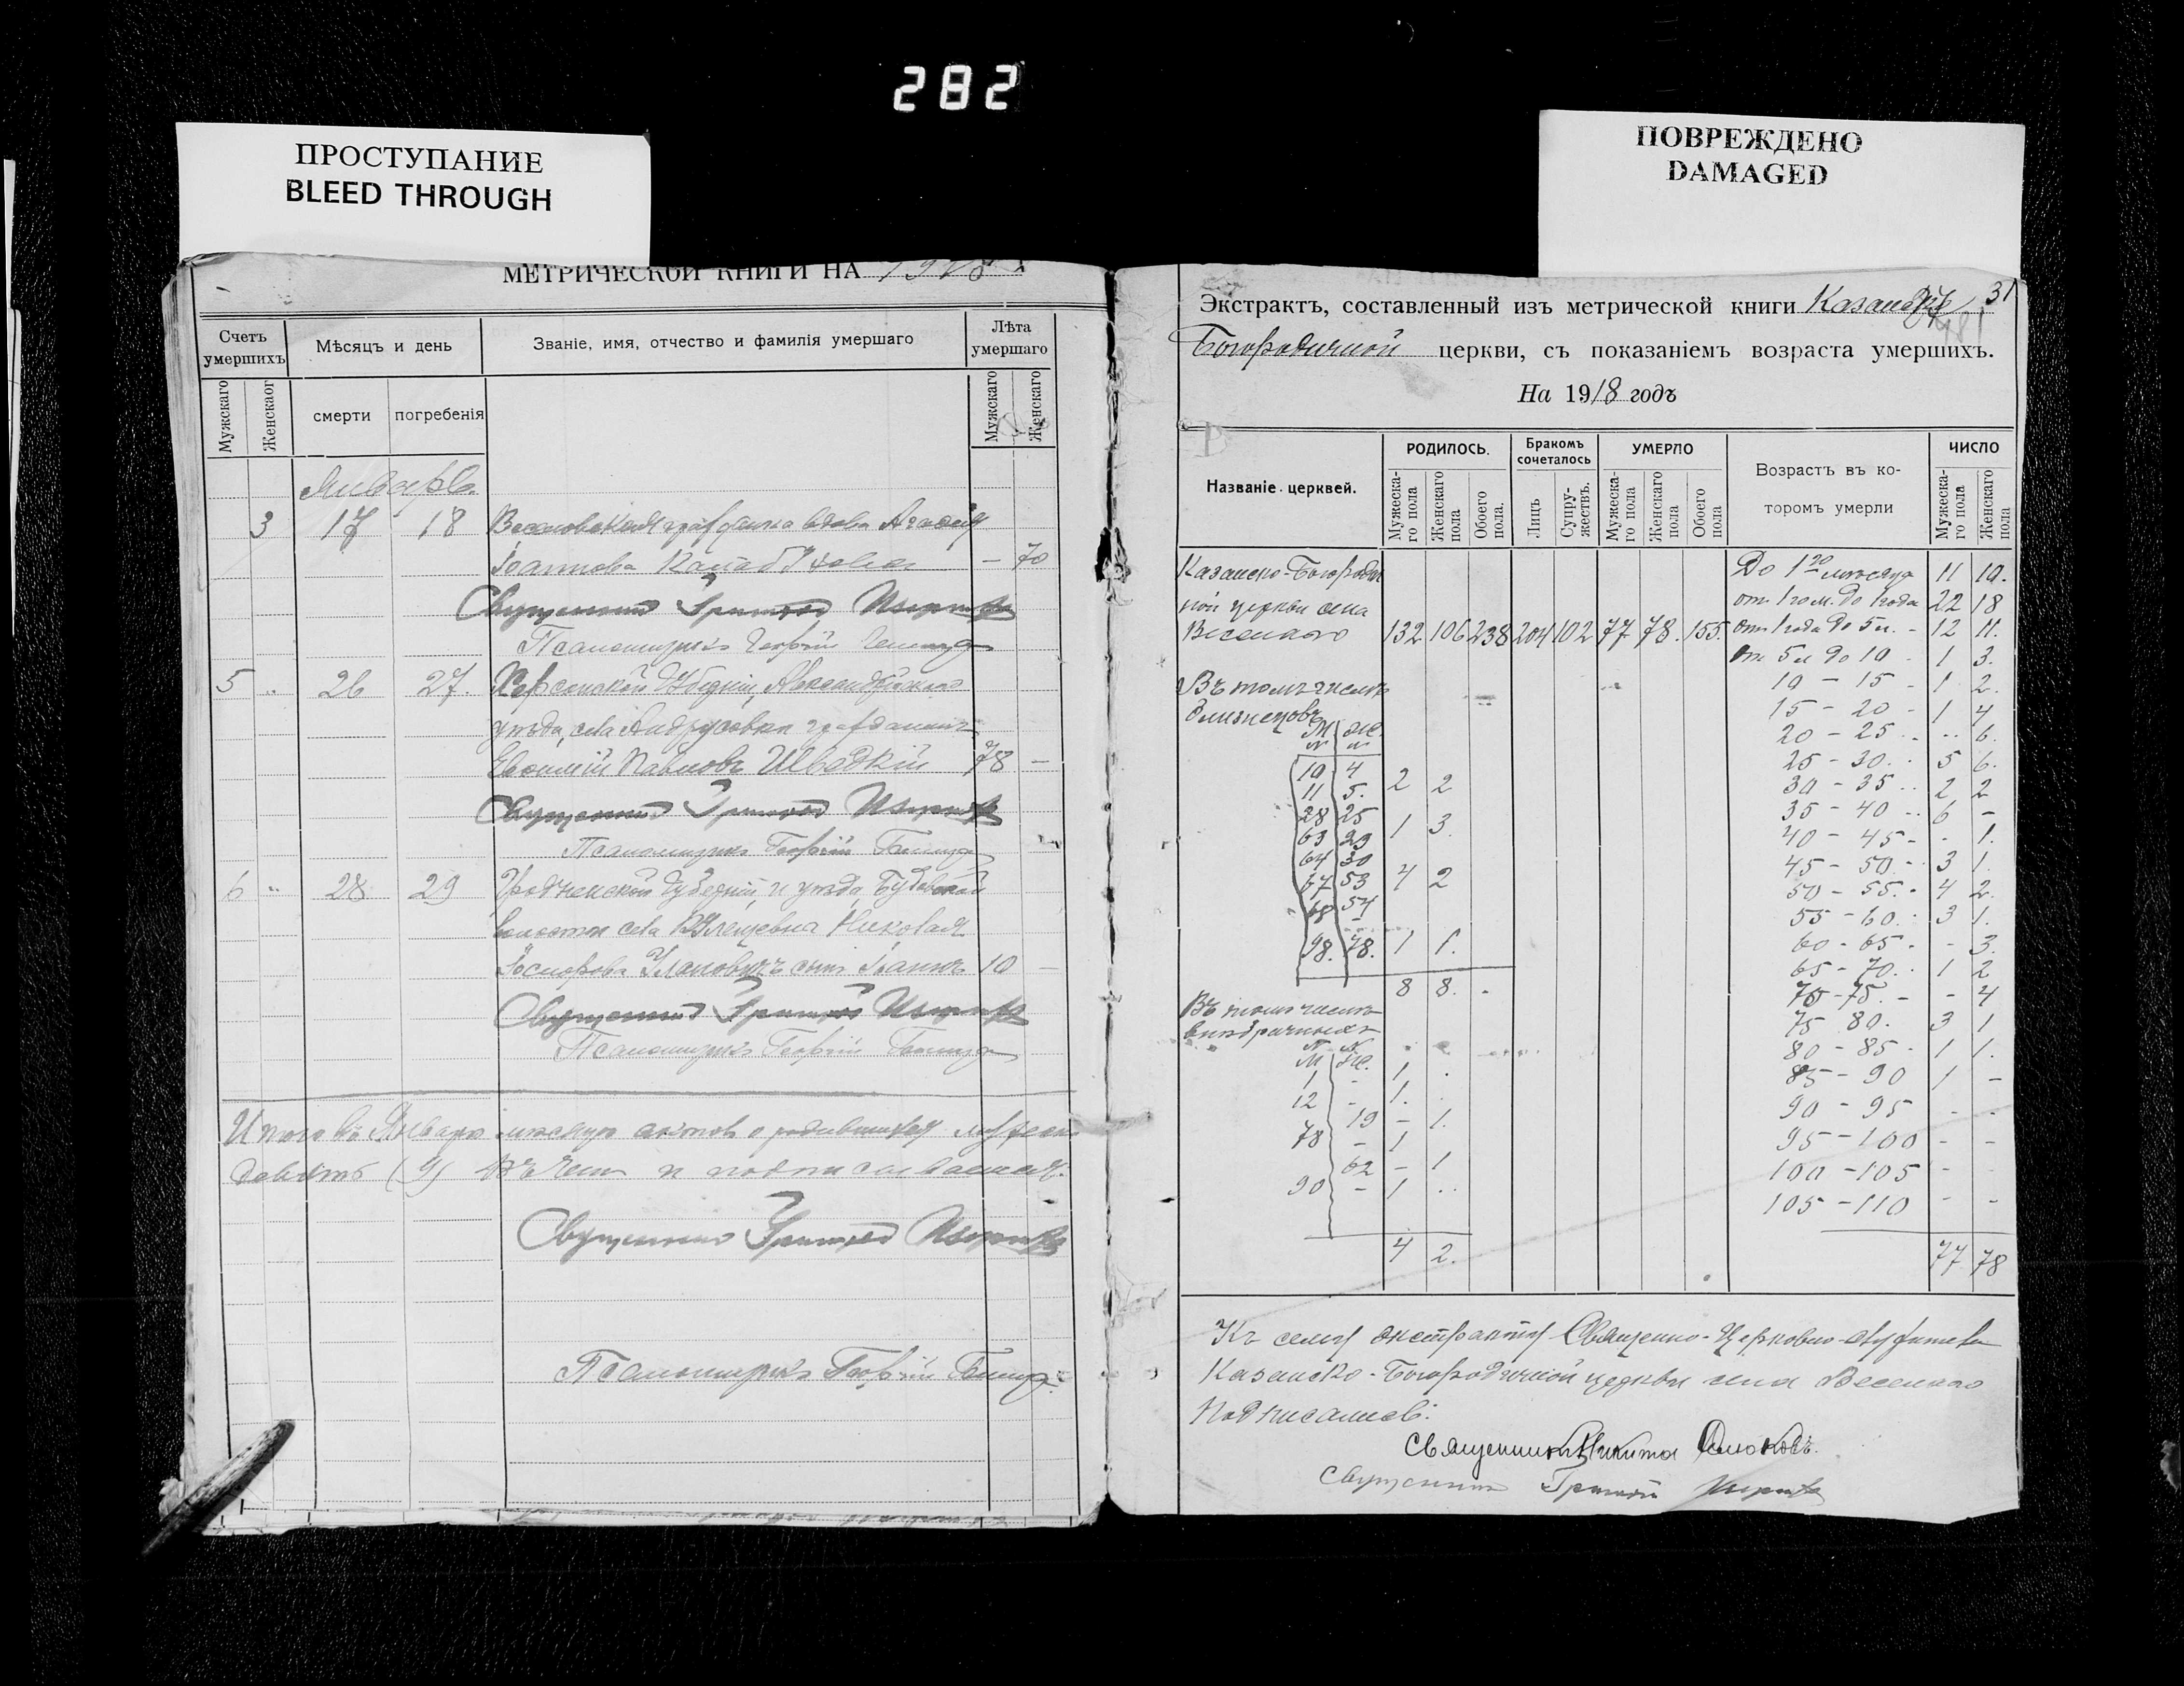 282
ПРОСТУПАНИЕ
BLEED THROUGH
ПОВРЕЖДЕНО
DAMAGED
МЕТРИЧЕСКОЙ КНИГИ НА 1918
Счетъ умершихъ
Мужскаго
Женскаог
Мѣсяцъ и день
смерти
погребенія
Званіе, имя, отчество и фамилія умершаго
Лѣта умершаго
Мужскаго
Женскаго
Январь.
3 17 18 Веселовская гражданка вдова Агафія
Іоаннова — 70
Священникъ Григорій
Псаломщикъ Георгій
5 .. 26 27. Херсонской губерніи, Александрійскаго
уѣзда, села Андрусовки гражданинъ
Евфимій Павловъ Швадкій 78 —
Священникъ Григорій
Псаломщикъ Георгій
6 .. 28 29 Гродненской губерніи, и уѣзда,
волости села Николая
сынъ Іоаннъ 10 —
Священникъ Григорій
Псаломщикъ Георгій
Итого въ Январѣ мѣсяцѣ актовъ о
девять (9) въ чемъ и подписываемся.
Священникъ Григорій
Псаломщикъ Георгій
31
Экстрактъ, составленный изъ метрической книги Казанско
Богородичной церкви, съ показаніемъ возраста умершихъ.
На 1918 годъ
Названіе церквей.
РОДИЛОСЬ.
Мужеска-го пола
Женскаго пола
Обоего пола.
Бракомъ сочеталось
Лицъ
Супру-жествъ.
УМЕРЛО
Мужеска-го пола
Женскаго пола
Обоего пола
Возрастъ въ ко-
торомъ умерли
ЧИСЛО
Мужеска-го пола
Женскаго пола
Казанско-Богородич
ной церкви села
Веселаго 132 106 238 204 102 77 78. 155.
До 1го мѣсяца 11 10.
отъ 1го м. до 1 года 22 18
отъ 1 года до 5 л. - 12 11.
отъ 5 л до 10 - 1 3.
10 - 15 - 1 2.
15 - 20 - 1 4
20 - 25 .. .. 6.
25 - 30 .. 5 6.
30 - 35 .. 2 2
35 - 40 .. 6 -
40 - 45 - - 1.
45 - 50 - 3 1.
50 - 55. - 4 2.
55 - 60. - 3 1.
60 - 65 - - 3.
65 - 70. - 1 2
70 - 75. - - 4
75 80. 3 1
80 - 85 - 1 1.
85 - 90 1 -
90 - 95 - -
95 - 100 - -
100 - 105 -
105 - 110 - -
77 78
Въ томъ числѣ
близнецовъ
М Ж.
10 4
11 5. 2 2
28 25
63 29 1 3.
64 30
67 53 4 2
68 54
98. 78. 1 1.
8 8.
Въ томъ числѣ
внѣбрачныхъ
М Ж.
1 - 1 .
12 - 1. .
19 - 1.
78 - 1
62 - 1
90 - 1 ..
4 2.
Къ сему экстракту Священно-Церковно-служители
Казанско-Богородичной церкви села Веселаго
подписались:
Священникъ Никита
Священникъ Григорій